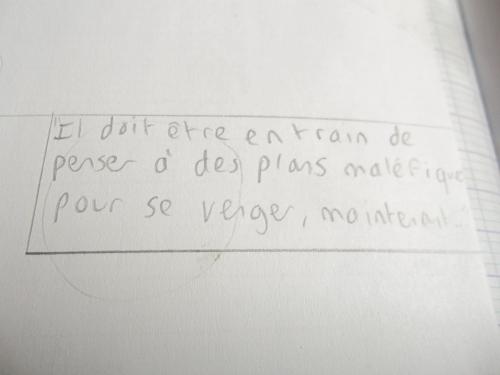 "Il doit être en train de
penser à des plans maléfique
pour se venger, maintenant."